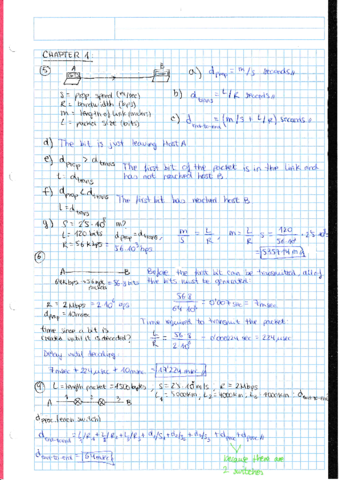 CHAPTER 1:
⑤ A B a) d_prop = m/s seconds
S = prop. speed (m/sec)
R = bandwidth (bps)
m = length of link (meters)
L = packet size (bits)
b) d_trans = L/R seconds
c) d_end-to-end = (m/s + L/R) seconds
d) The bit is just leaving Host A
e) d_prop > d_trans The first bit of the packet is in the link and
t = d_trans has not reached host B.
f) d_prop < d_trans The first bit has reached host B
t = d_trans
g) S = 2'5·10⁸ m?
L = 120 bits d_prop = d_trans, m/S = L/R, m = L/R S = 120/56·10³ · 2'5·10⁸
R = 56 kbps
⑥
A B Before the first bit can be transmitted, all of
the bits must be generated
R = 2 Mbps = 2·10⁶
d_prop = 10 msec
56·8/64·10³ = 0'007 sec = 7 msec
Time required to transmit the packet:
time since a bit is
created until it is decoded?
L/R = 56·8/2·10⁶ = 0'000224 sec = 224 μsec
Delay until decoding
7 msec + 224 μsec + 10 msec = 17'224 msec
L = length packet = 1500 bytes, S = 2'5·10⁸ m/s, R = 2 Mbps
A B
d_proc (each switch)
d_end-to-end = L/R₁ + L/R₂ + L/R₃ + d₁/S₁ + d₂/S₂ + d₃/S₃ + d_proc + d_proc
d_end-to-end = 64 msec
because there are
2 switches